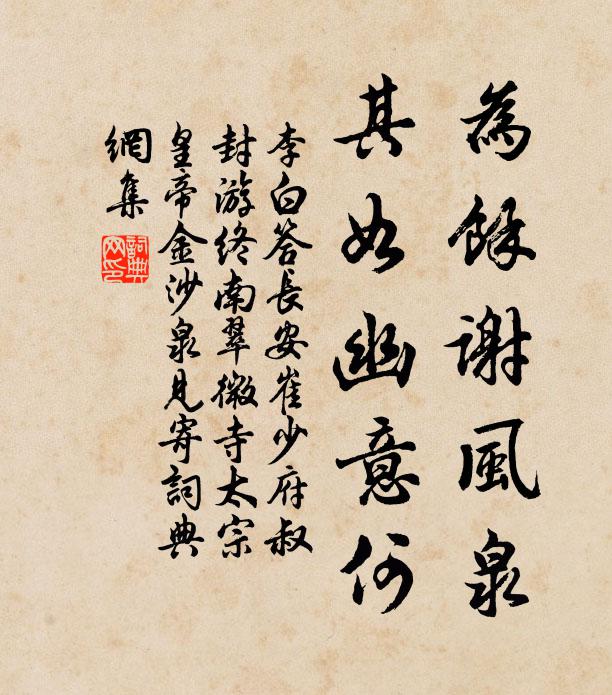 為餘謝風泉
其如幽意何
李白答長安崔少府叔
封游終南翠微寺太宗
皇帝金沙泉見寄詞典
網集
詞典網印